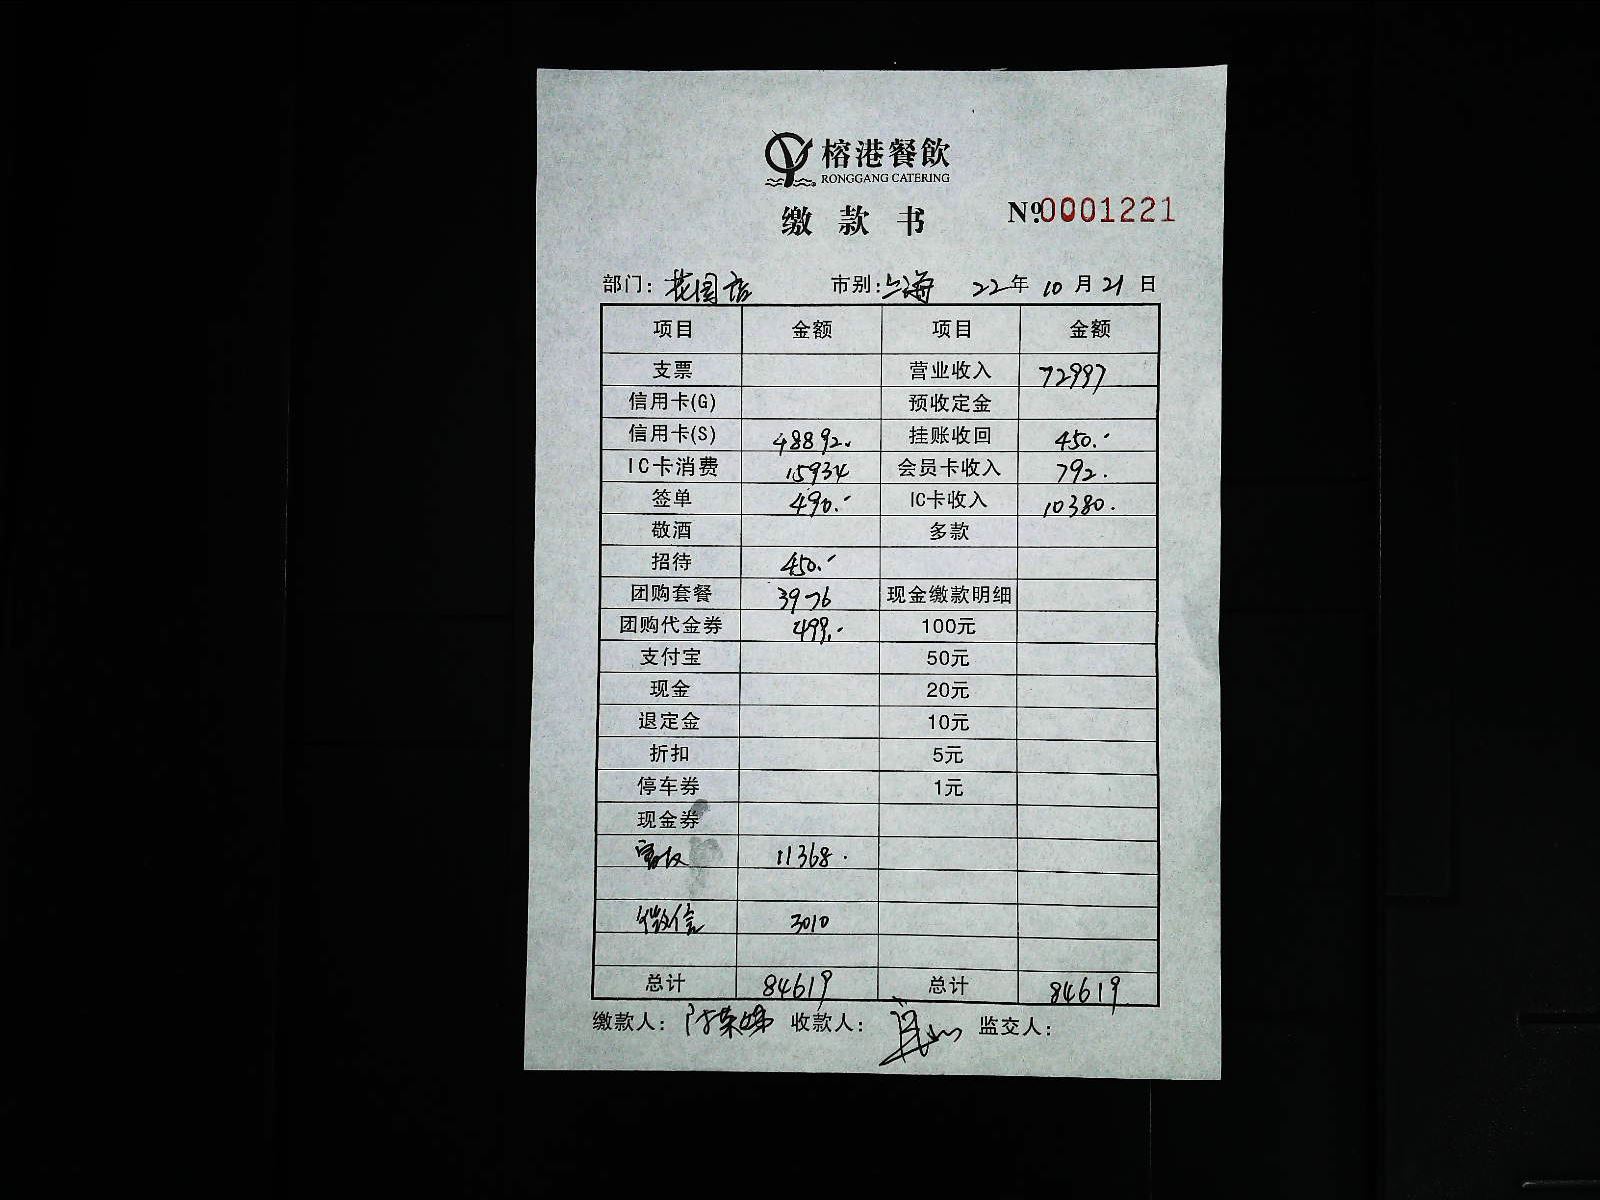 榕港餐飲
RONGGANG CATERING
缴款书 №0001221
部门: 花园店 市别: 上海 22年 10月 21日
项目 金额 项目 金额
支票 营业收入 72997
信用卡(G) 预收定金
信用卡(S) 48892. 挂账收回 450.-
IC卡消费 15934 会员卡收入 792.
签单 490.- IC卡收入 10380.
敬酒 多款
招待 450.-
团购套餐 3976 现金缴款明细
团购代金券 499.- 100元
支付宝 50元
现金 20元
退定金 10元
折扣 5元
停车券 1元
现金券
11368.
微信 3010
总计 84619 总计 84619
缴款人: 陈荣娣 收款人: 监交人: